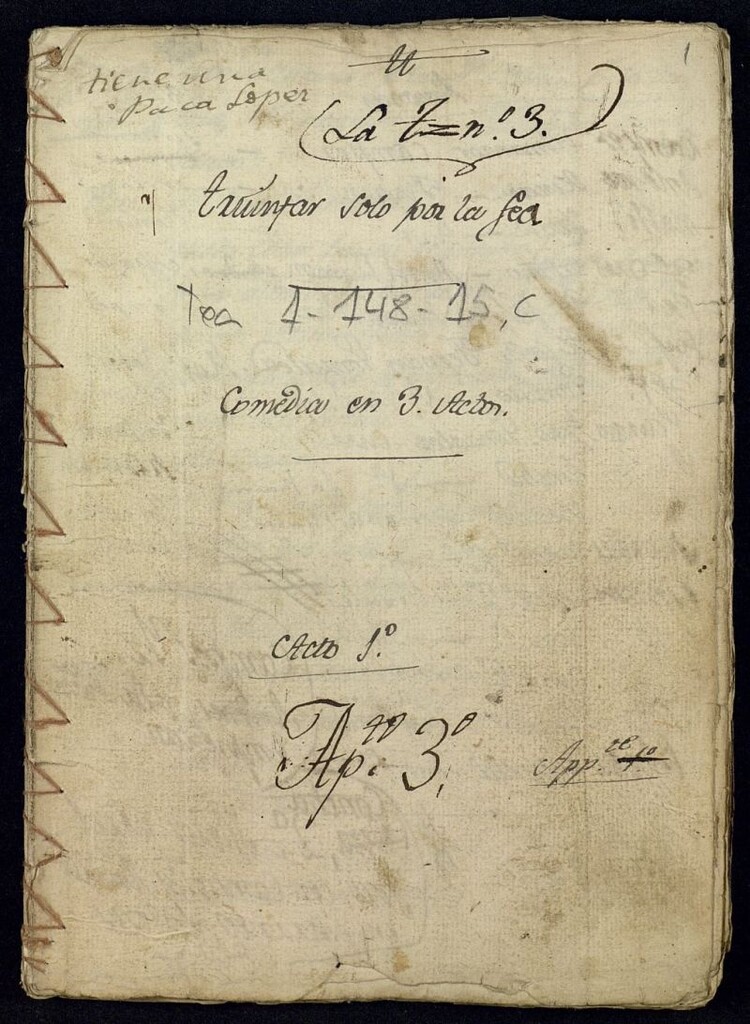 1
tiene una
Paca Lopez
La T= n.º 3.
Triunfar solo por la fea
Tea 1-148-15, C
Comedia en 3. Actos.
Acto 1.º
Ap.to 3.º
App.te 1.º